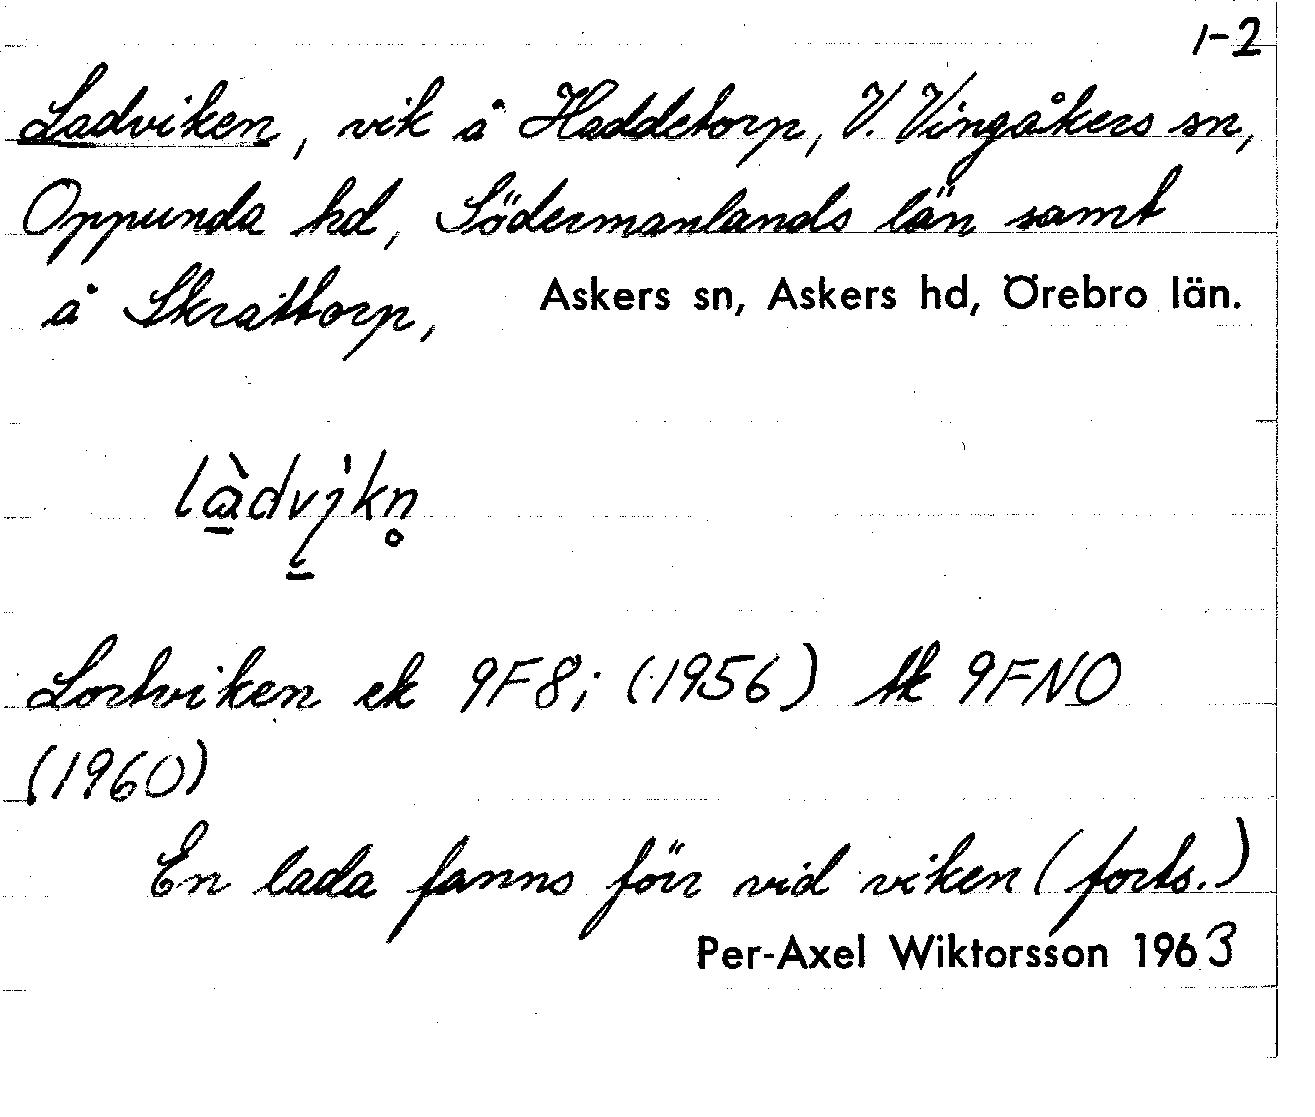 1-2
Ladviken, vik å Haddetorp, V. Vingåkers sn,
Oppunda hd, Södermanlands län samt
å Skrattorp, Askers sn, Askers hd, Örebro län.
làdvikn̥
Lortviken ek 9F8; (1956) tk 9FNO
(1960)
En lada fanns förr vid viken (forts.)
Per-Axel Wiktorsson 1963